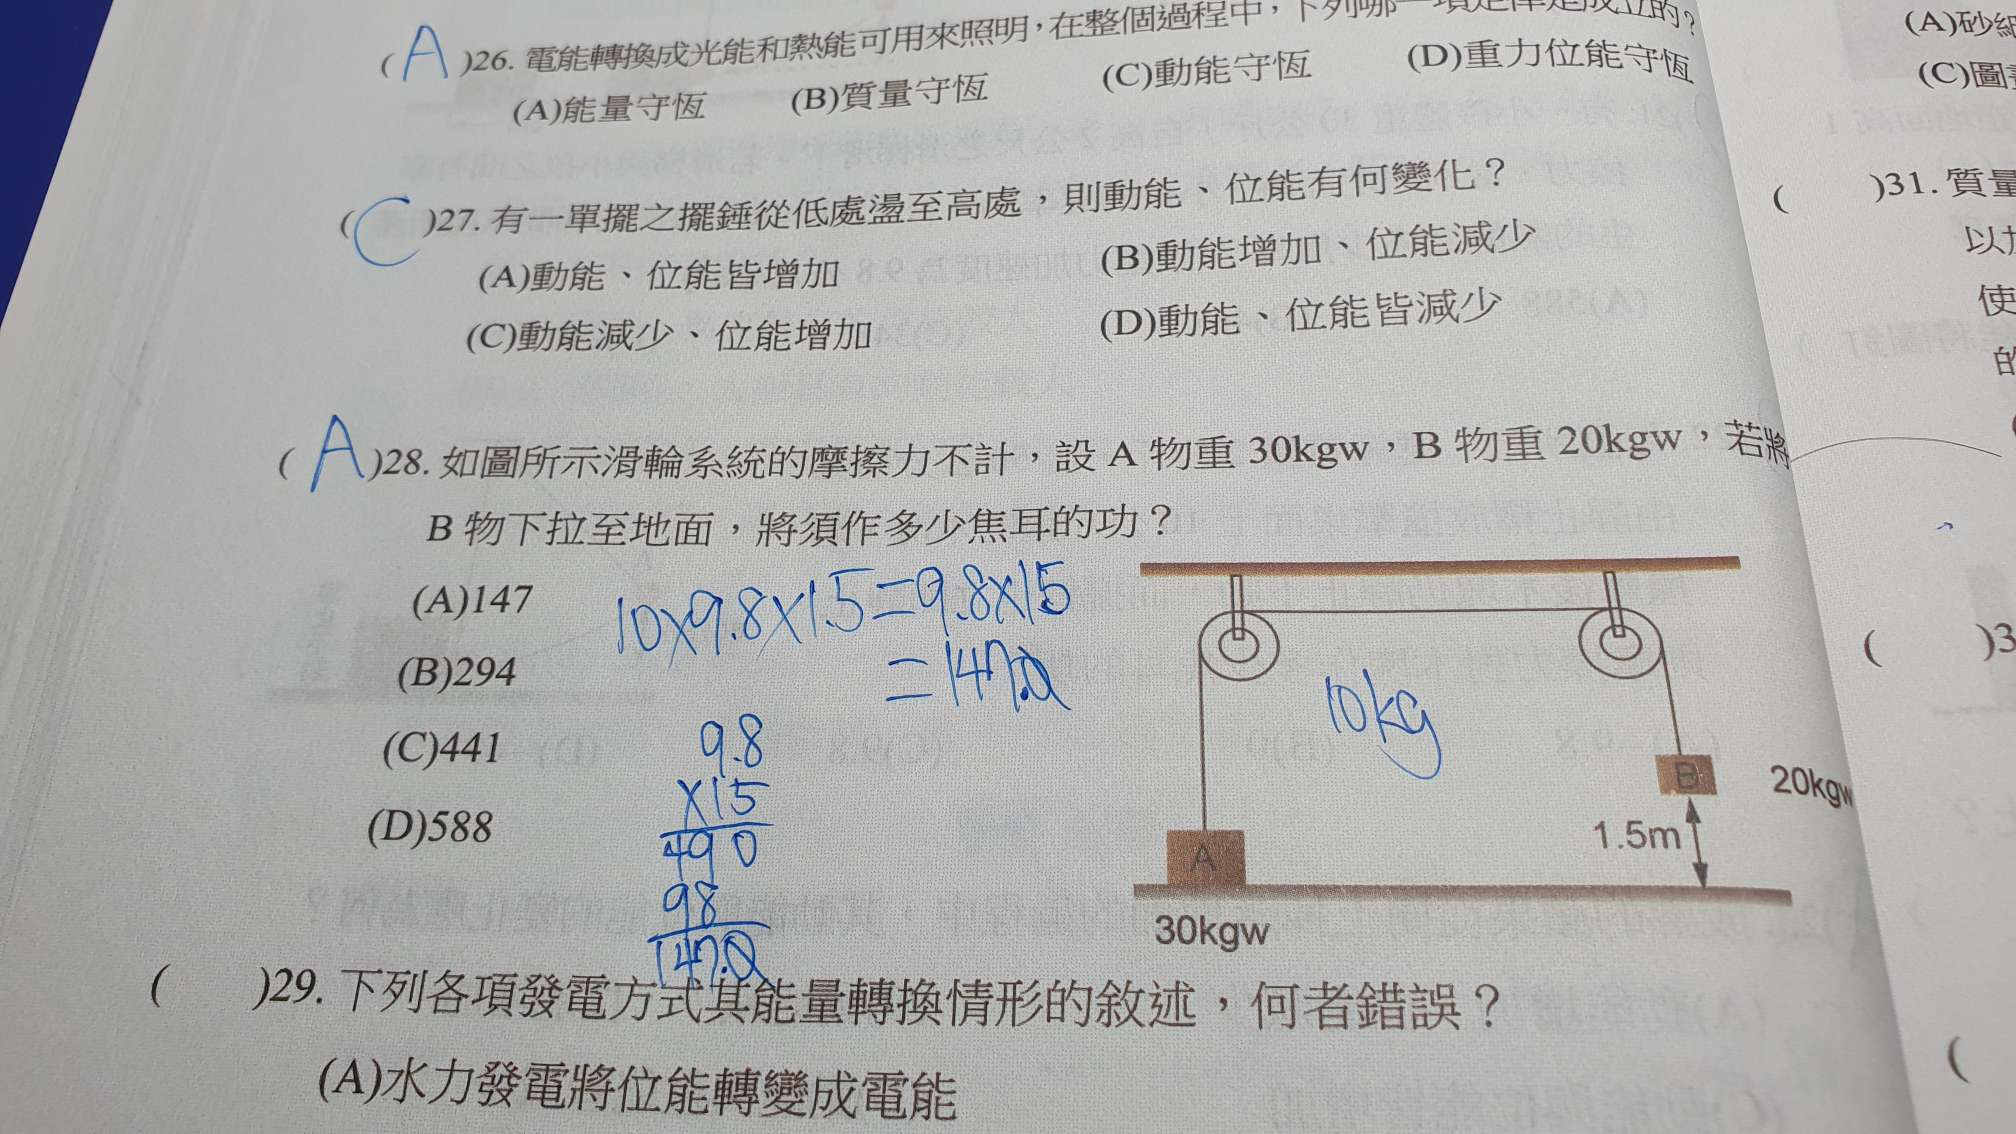 ( A )26. 電能轉換成光能和熱能可用來照明，在整個過程中，下列哪一項定律是成立的?
(A)能量守恆 (B)質量守恆 (C)動能守恆 (D)重力位能守恆
( C )27. 有一單擺之擺錘從低處盪至高處，則動能、位能有何變化？
(A)動能、位能皆增加 (B)動能增加、位能減少
(C)動能減少、位能增加 (D)動能、位能皆減少
( A )28. 如圖所示滑輪系統的摩擦力不計，設 A 物重 30kgw，B 物重 20kgw，若將
B 物下拉至地面，將須作多少焦耳的功？
(A)147
(B)294
(C)441
(D)588
10×9.8×1.5=9.8×15
=147.0
9.8
×15
490
98
147.0
10kg
A
B
20kgw
1.5m
30kgw
( )29. 下列各項發電方式其能量轉換情形的敘述，何者錯誤？
(A)水力發電將位能轉變成電能
(A)砂
(C)圖
( )31. 質量
以
使
的
( )3
(